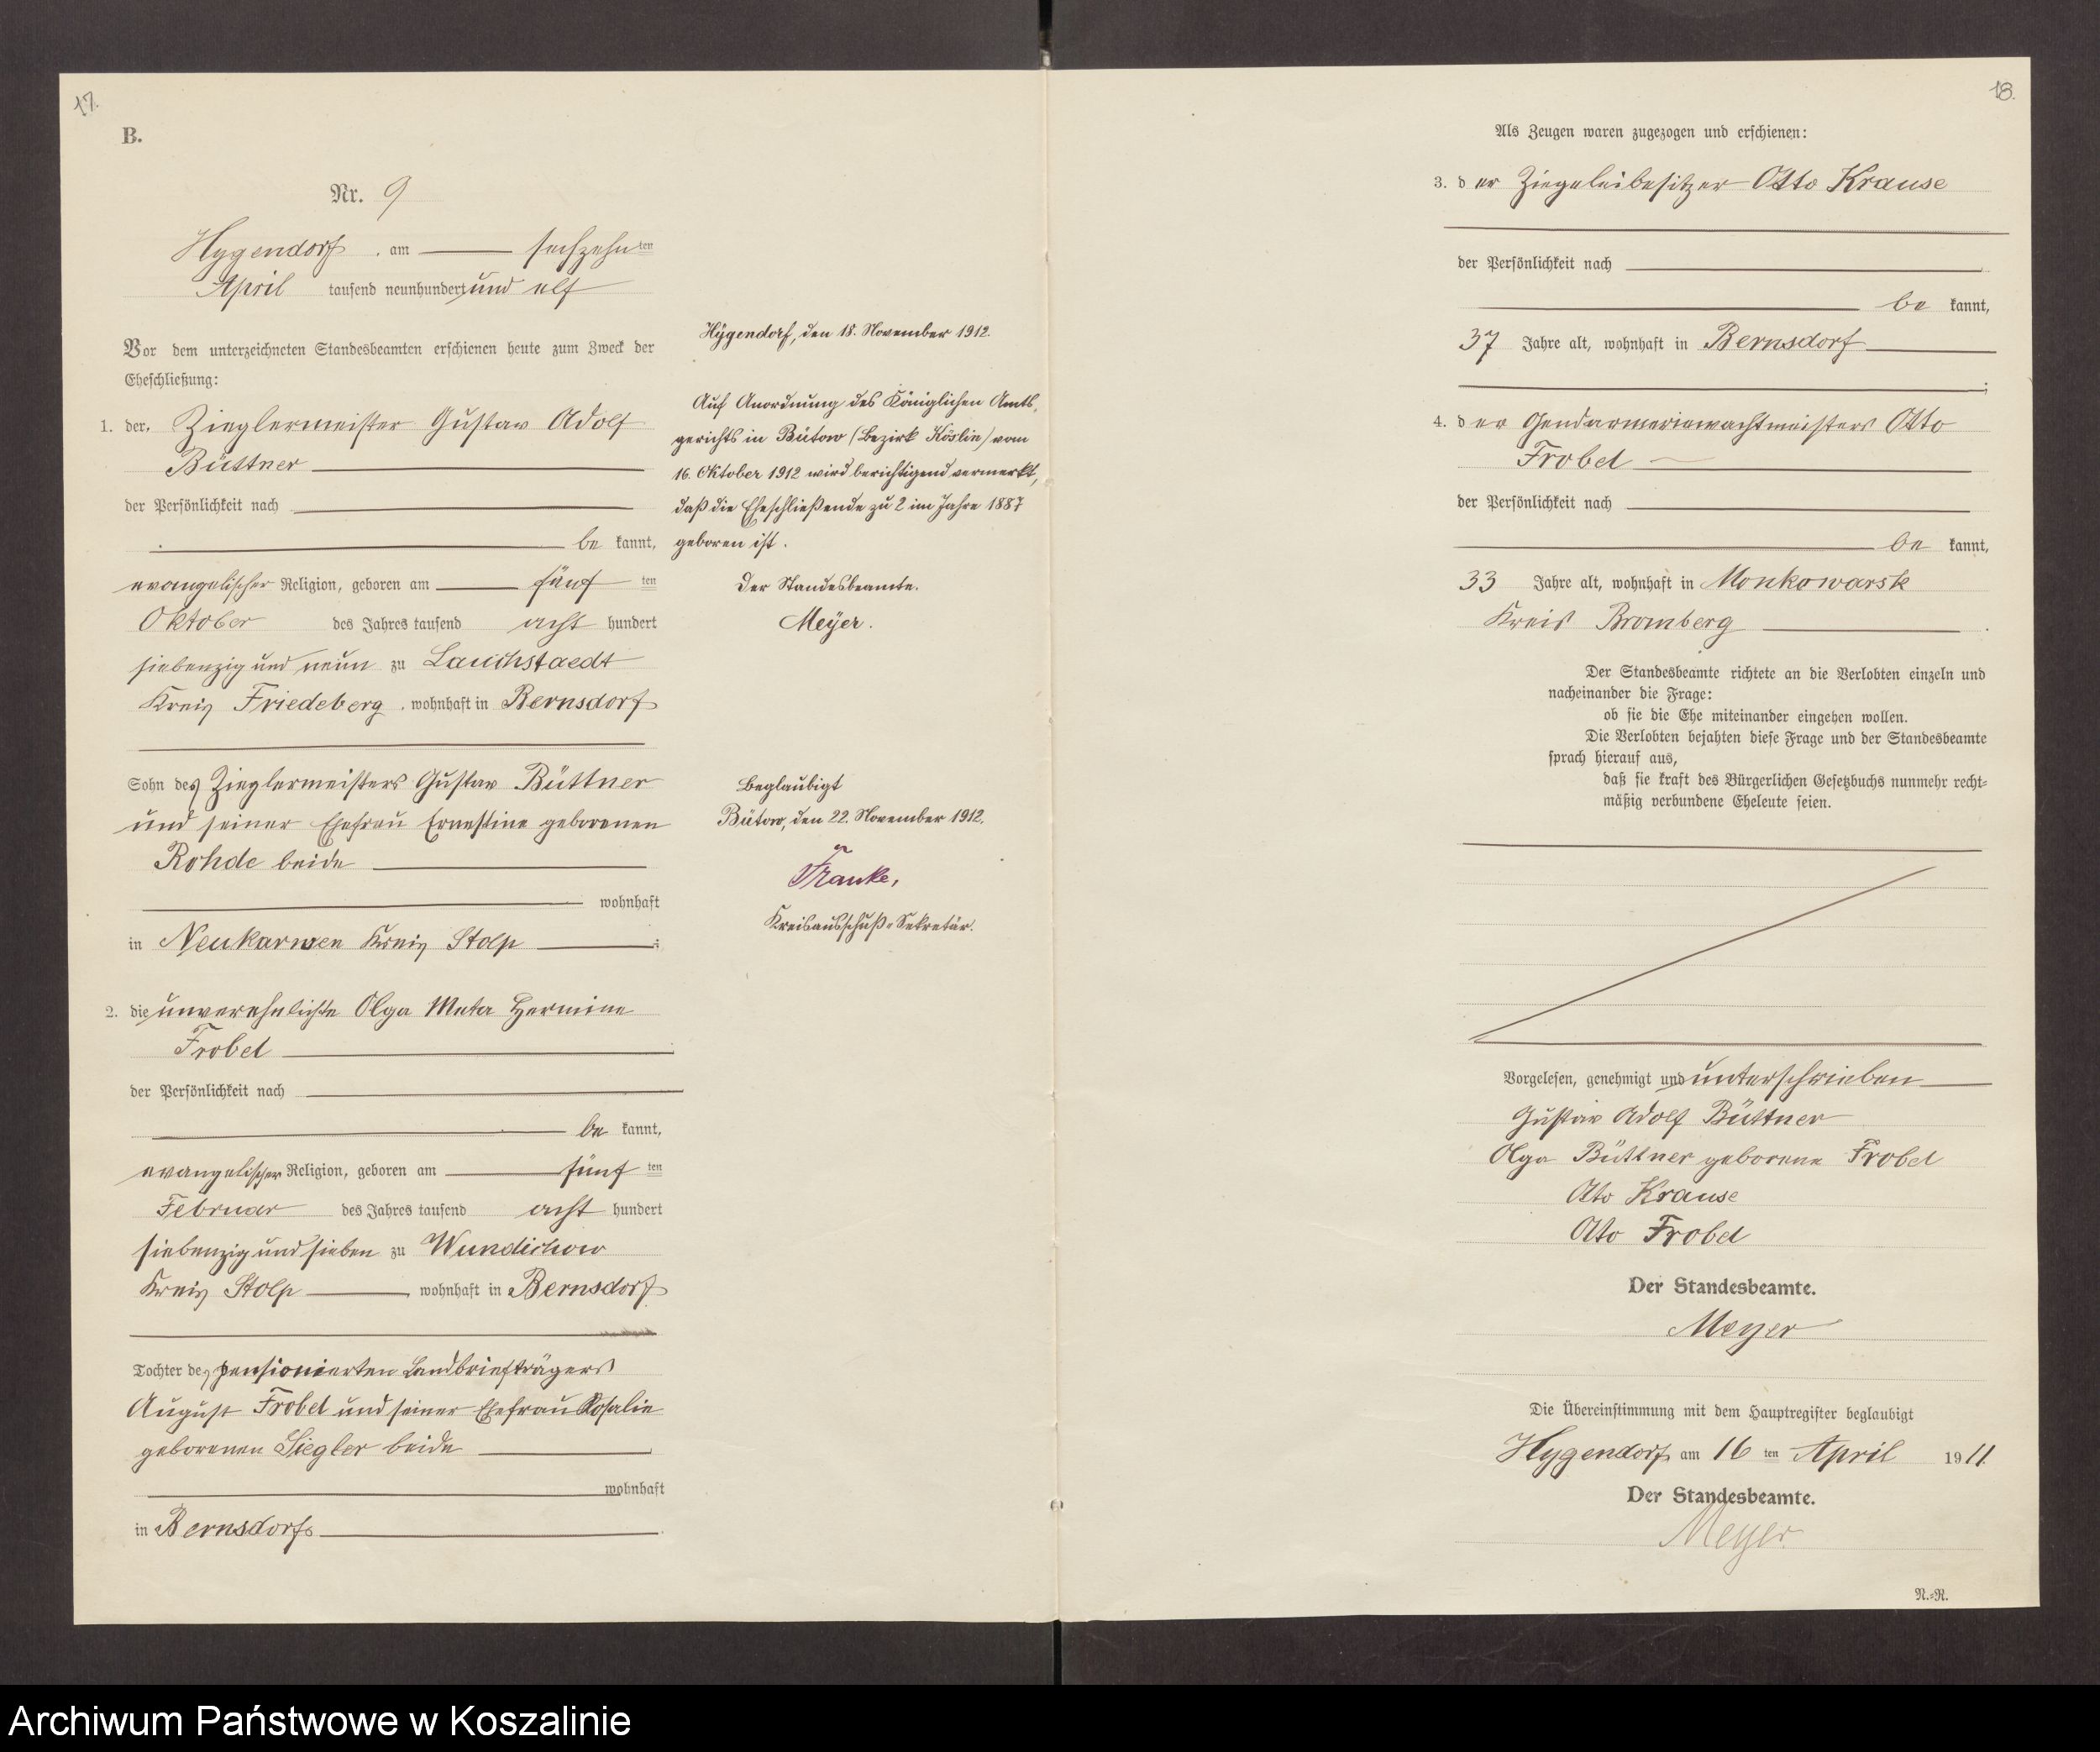 17.
B.
Nr. 9
Hygendorf, am sechzehnten
April tausend neunhundert und elf
Vor dem unterzeichneten Standesbeamten erschienen heute zum Zweck der
Eheschließung:
1. der Zieglermeister Gustav Adolf
Büttner
der Persönlichkeit nach
bekannt,
evangelischer Religion, geboren am fünften
Oktober des Jahres tausend achthundert
siebenzig und neun zu Lauchstaedt
Kreis Friedeberg, wohnhaft in Bernsdorf
Sohn des Zieglermeisters Gustav Büttner
und seiner Ehefrau Ernestine geborenen
Rohde beide
wohnhaft
in Neukarwen Kreis Stolp;
2. die unverehelichte Olga Meta Hermine
Frobel
der Persönlichkeit nach
bekannt,
evangelischer Religion, geboren am fünften
Februar des Jahres tausend achthundert
siebenzig und sieben zu Wundichow
Kreis Stolp, wohnhaft in Bernsdorf
Tochter des pensionierten Landbriefträgers
August Frobel und seiner Ehefrau Rosalie
geborenen Siegler beide
wohnhaft
in Bernsdorf.
Hÿgendorf, den 18. November 1912.
Auf Anordnung des Königlichen Amts-
gerichts in Bütow (Bezirk Köslin) vom
16. Oktober 1912 wird berichtigend vermerkt,
daß die Eheschließende zu 2 im Jahre 1887
geboren ist.
Der Standesbeamte.
Meÿer.
Beglaubigt
Bütow, den 22. November 1912.
Franke,
Kreisausschuß-Sekretär.
18.
Als Zeugen waren zugezogen und erschienen:
3. der Ziegeleibesitzer Otto Krause
der Persönlichkeit nach
bekannt,
37 Jahre alt, wohnhaft in Bernsdorf
;
4. der Gendarmeriewachtmeisters Otto
Frobel
der Persönlichkeit nach
bekannt,
33 Jahre alt, wohnhaft in Monkowarsk
Kreis Bromberg.
Der Standesbeamte richtete an die Verlobten einzeln und
nacheinander die Frage:
ob sie die Ehe miteinander eingehen wollen.
Die Verlobten bejahten diese Frage und der Standesbeamte
sprach hierauf aus,
daß sie kraft des Bürgerlichen Gesetzbuchs nunmehr recht-
mäßig verbundene Eheleute seien.
Vorgelesen, genehmigt und unterschrieben
Gustav Adolf Büttner
Olga Büttner geborene Frobel
Otto Krause
Otto Frobel
Der Standesbeamte.
Meyer
Die Übereinstimmung mit dem Hauptregister beglaubigt
Hygendorf am 16ten April 1911.
Der Standesbeamte.
Meyer
N.=R.
Archiwum Państwowe w Koszalinie